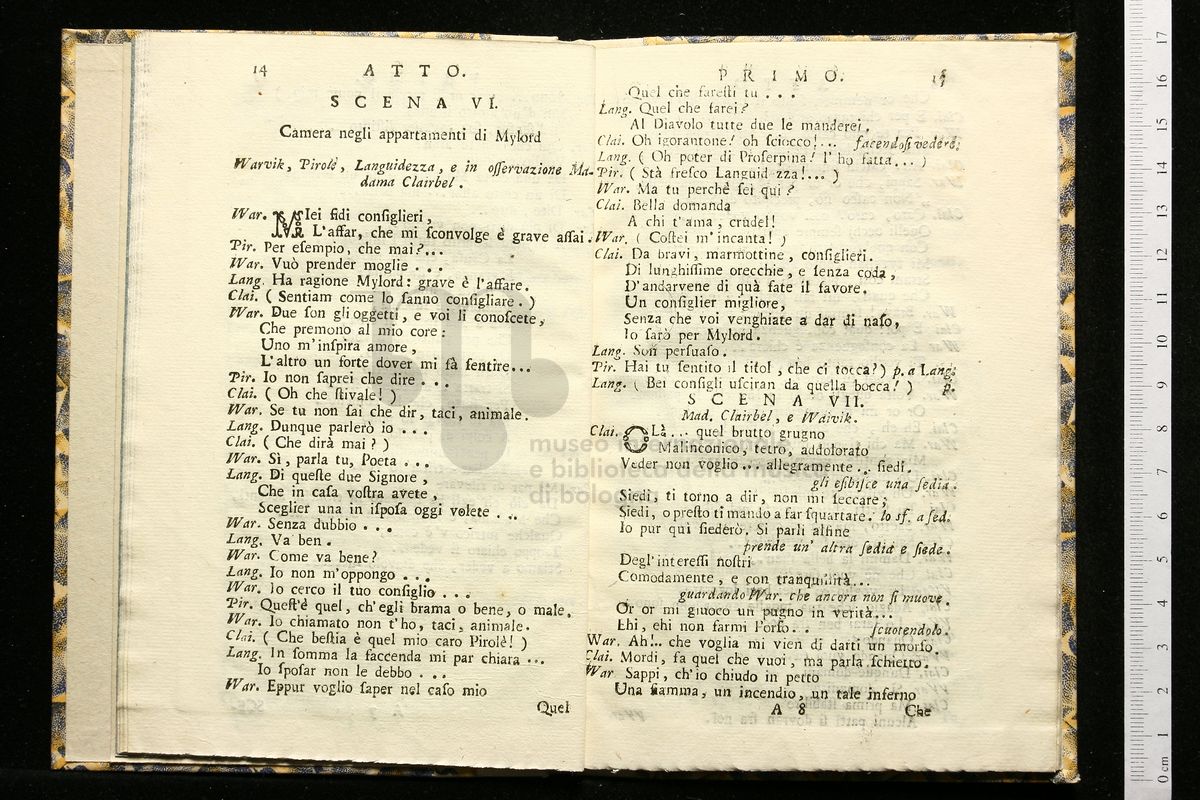 14 ATTO.
SCENA VI.
Camera negli appartamenti di Mylord
Warvik, Pirolè, Languidezza, e in oſſervazione Ma-
dama Clairbel.
War. MIei fidi conſiglieri,
L'affar, che mi ſconvolge è grave aſſai.
Pir. Per eſempio, che mai?...
War. Vuò prender moglie ...
Lang. Ha ragione Mylord: grave è l'affare.
Clai. ( Sentiam come lo ſanno conſigliare. )
War. Due ſon gli oggetti, e voi li conoſcete,
Che premono al mio core:
Uno m'inſpira amore,
L'altro un forte dover mi fà ſentire...
Pir. Io non ſaprei che dire ...
Clai. ( Oh che ſtivale! )
War. Se tu non ſai che dir, taci, animale.
Lang. Dunque parlerò io ...
Clai. ( Che dirà mai? )
War. Sì, parla tu, Poeta ...
Lang. Di queſte due Signore,
Che in caſa voſtra avete,
Sceglier una in iſpoſa oggi volete ...
War. Senza dubbio ...
Lang. Va ben.
War. Come va bene?
Lang. Io non m'oppongo ...
War. Io cerco il tuo conſiglio ...
Pir. Queſt'è quel, ch'egli brama o bene, o male.
War. Io chiamato non t'ho, taci, animale.
Clai. ( Che beſtia è quel mio caro Pirolè! )
Lang. In ſomma la faccenda mi par chiara ...
Io ſpoſar non le debbo ...
War. Eppur voglio ſaper nel caſo mio
Quel
PRIMO. 15
Quel che fareſti tu ...
Lang. Quel che farei?
Al Diavolo tutte due le manderei.
Clai. Oh ignorantone! oh ſciocco!... facendoſi vedere;
Lang. ( Oh poter di Proſerpina! l'ho fatta... )
Pir. ( Stà freſco Languid zza!... )
War. Ma tu perchè ſei qui?
Clai. Bella domanda
A chi t'ama, crudel!
War. ( Coſtei m'incanta! )
Clai. Da bravi, marmottine, conſiglieri.
Di lunghiſſime orecchie, e ſenza coda,
D'andarvene di quà fate il favore.
Un conſiglier migliore,
Senza che voi venghiate a dar di naſo,
Io ſarò per Mylord.
Lang. Son perſuaſo.
Pir. Hai tu ſentito il titol, che ci tocca?) p. a Lang;
Lang. ( Bei conſigli uſciran da quella bocca! ) p.
SCENA VII.
Mad. Clairbel, e Waivik.
Clai. OLà... quel brutto grugno
Malinconico, tetro, addolorato
Veder non voglio... allegramente... ſiedi.
gli eſibiſce una ſedia.
Siedi, ti torno a dir, non mi ſeccare;
Siedi, o preſto ti mando a far ſquartare. lo sf. a ſed.
Io pur qui ſiederò. Si parli alfine
prende un' altra ſedia e ſiede.
Degl'intereſſi noſtri
Comodamente, e con tranquilità...
guardando War. che ancora non ſi muove.
Or or mi giuoco un pugno in verità...
Ehi, ehi non farmi l'orſo... ſcuotendolo.
War. Ah!.. che voglia mi vien di darti un morſo.
Clai. Mordi, fa quel che vuoi, ma parla ſchietto.
War Sappi, ch'io chiudo in petto
Una fiamma, un incendio, un tale inferno
A 8 Che
museo internazionale
e biblioteca della musica
di bologna
17
16
15
14
13
12
11
10
9
8
7
6
5
4
3
2
1
0 cm